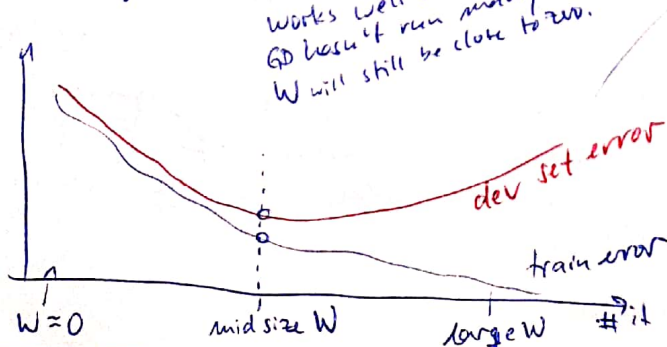 works well
GD hasn't run
W will still be close to zero.
dev set error
train error
W ≈ 0
mid size W
large W
# it